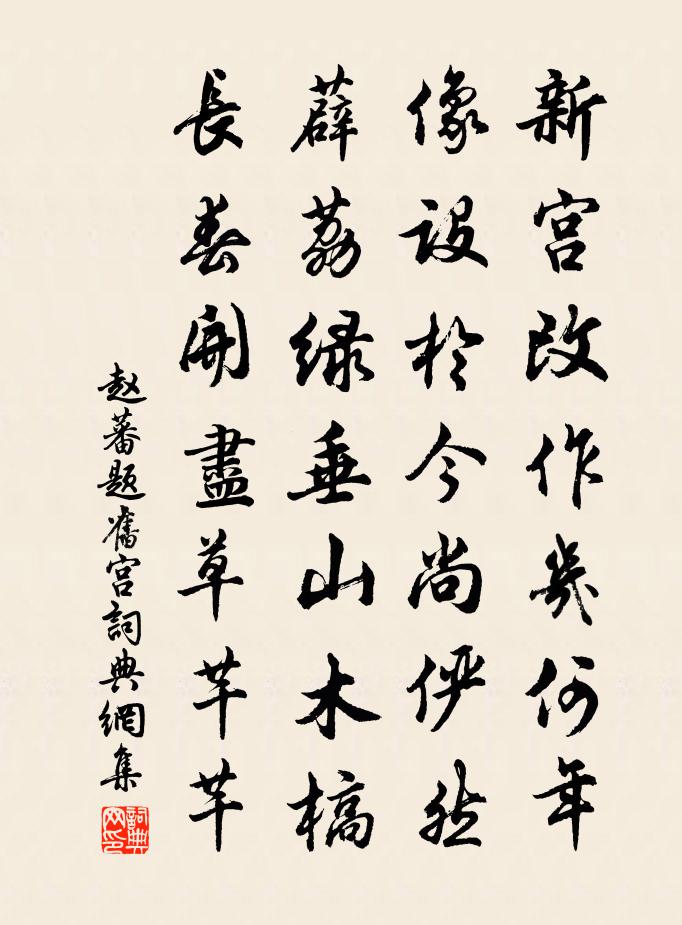 新宫改作几何年
像設於今尚俨然
薜荔绿垂山木槁
長春開盡草芊芊
赵蕃题舊宫詞典網集
詞典网印